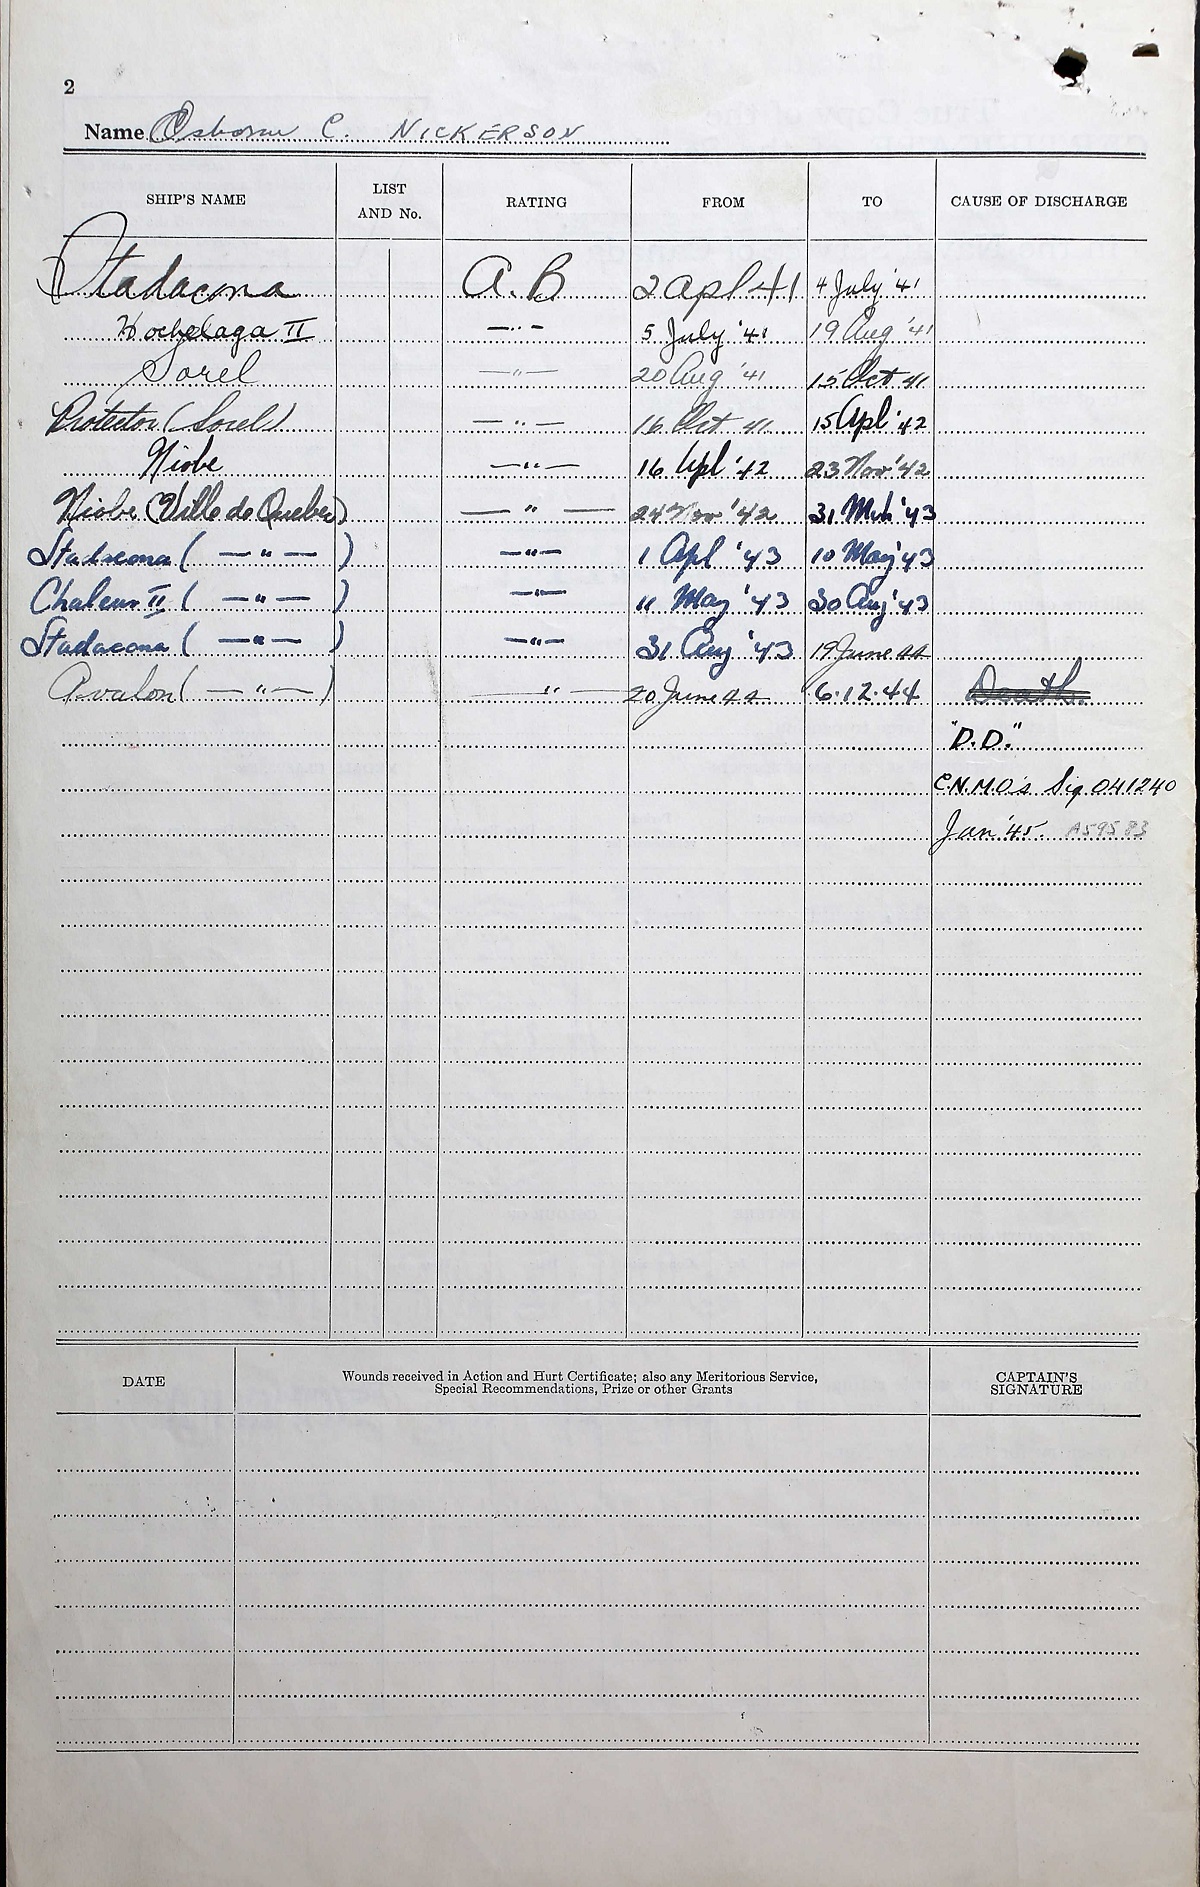 2
Name Osborne C. NICKERSON
SHIP'S NAME LIST AND No. RATING FROM TO CAUSE OF DISCHARGE
Stadacona A.B 2 Apl 41 4 July '41
Hochelaga II —"— 5 July '41 19 Aug '41
Sorel —"— 20 Aug '41 15 Oct 41
Protector (Sorel) —"— 16 Oct 41 15 Apl '42
Niobe —"— 16 Apl '42 23 Nov '42
Niobe (Ville de Quebec) —"— 24 Nov '42 31 Mch '43
Stadacona (—"—) —"— 1 Apl '43 10 May '43
Chaleur II (—"—) —"— 11 May '43 30 Aug '43
Stadacona (—"—) —"— 31 Aug '43 19 June 44
Avalon (—"—) —"— 20 June 44 6.12.44 Death.
"D.D."
C.N.M.O's Sig 041240
Jan '45. A59583
DATE Wounds received in Action and Hurt Certificate; also any Meritorious Service, CAPTAIN'S
Special Recommendations, Prize or other Grants SIGNATURE